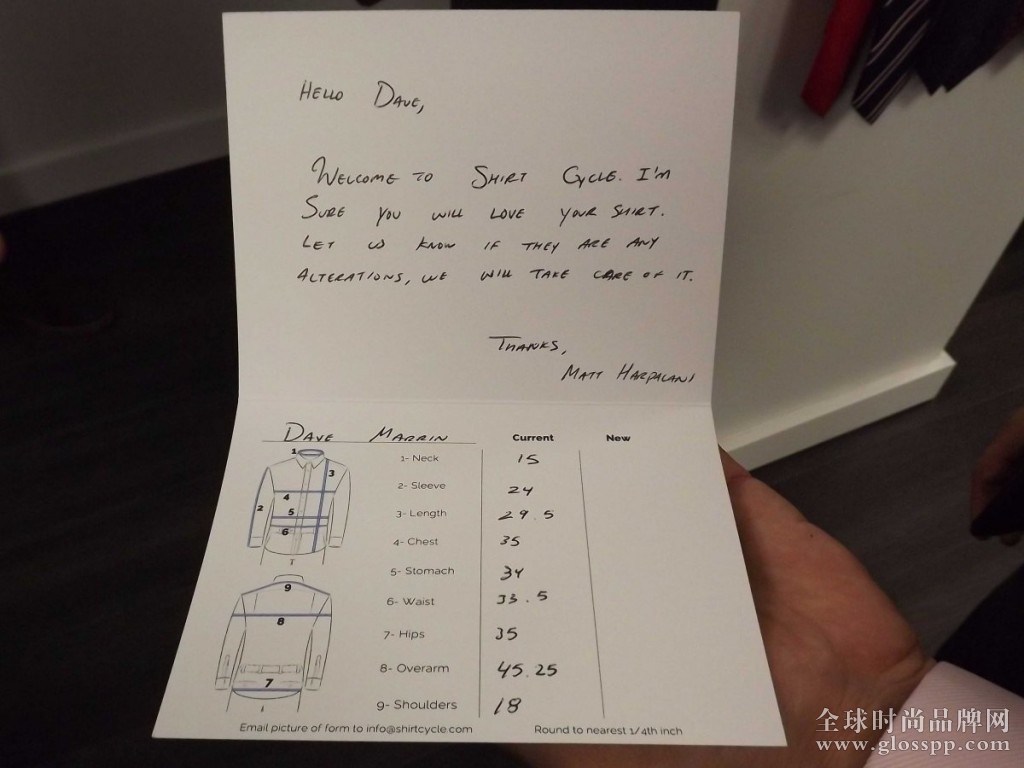 HELLO DAVE,
WELCOME TO SHIRT CYCLE. I'M
SURE YOU WILL LOVE YOUR SHIRT.
LET US KNOW IF THEY ARE ANY
ALTERATIONS, WE WILL TAKE CARE OF IT.
THANKS,
MATT HARPALANI
DAVE MARRIN Current New
1- Neck 15
2- Sleeve 24
3- Length 29.5
4- Chest 35
5- Stomach 34
6- Waist 33.5
7- Hips 35
8- Overarm 45.25
9- Shoulders 18
1
3
4
2
5
6
9
8
7
Email picture of form to info@shirtcycle.com Round to nearest 1/4th inch
全球时尚品牌网
www.glosspp.com